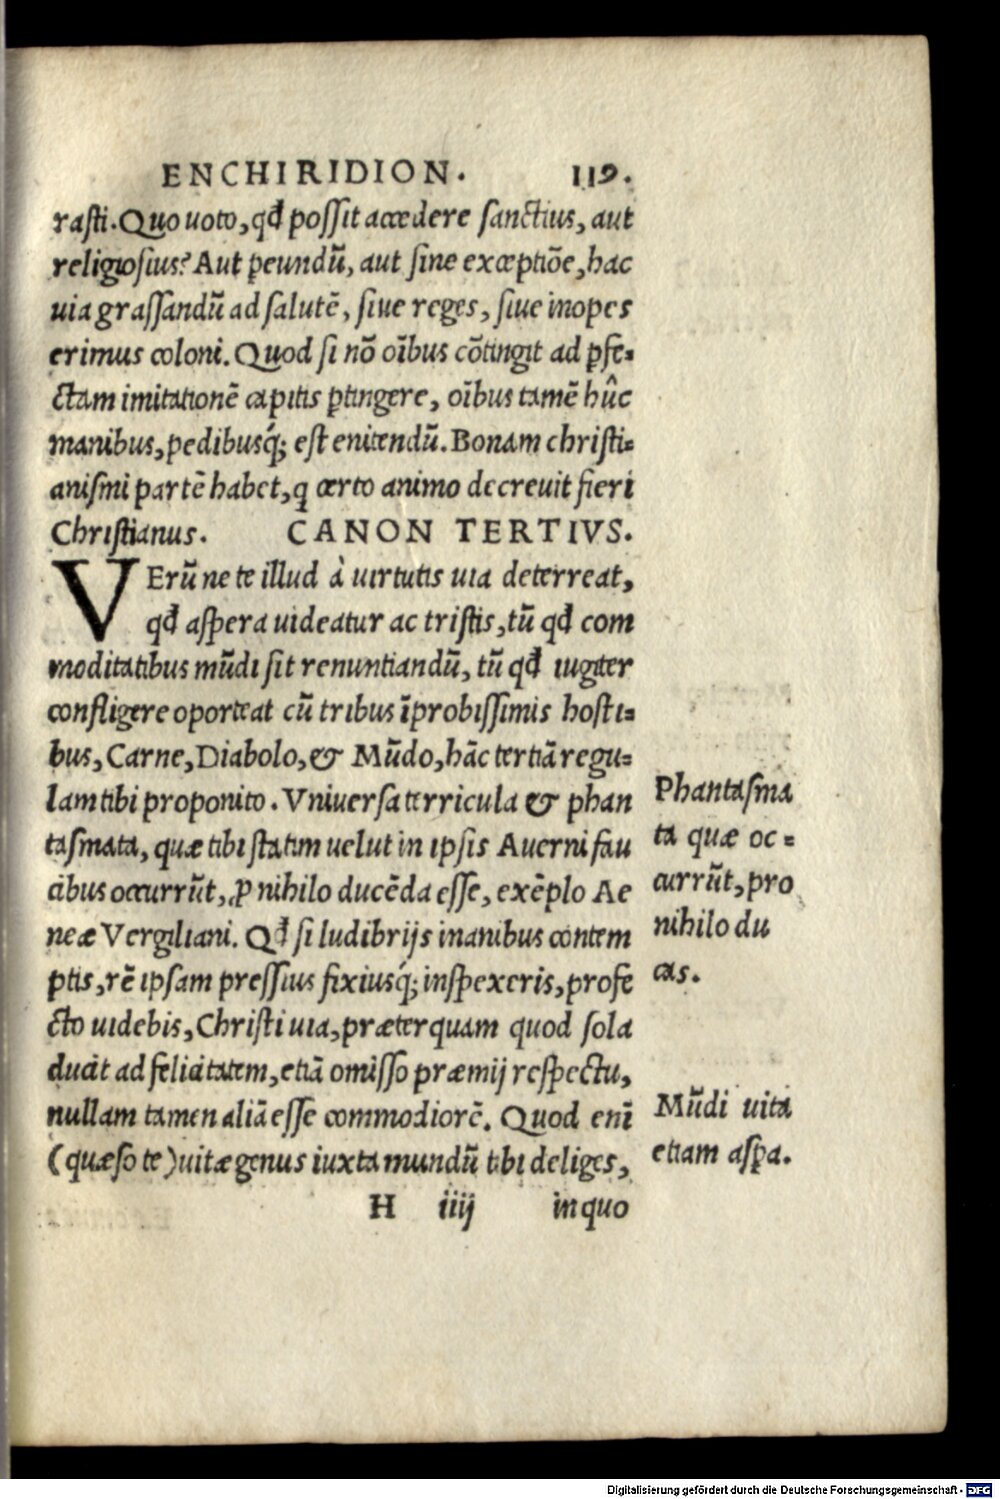 ENCHIRIDION. 119.
rasti. Quo uoto, qđ possit accedere sanctius, aut
religiosius? Aut ꝑeundũ, aut sine exceptiõe, hac
uia grassandũ ad salutẽ, siue reges, siue inopes
erimus coloni. Quod si nõ oĩbus cõtingit ad ꝑfe=
ctam imitationẽ capitis ꝑtingere, oĩbus tamẽ hûc
manibus, pedibusq́; est enitendũ. Bonam christi=
anismi partẽ habet, q certo animo decreuit fieri
Christianus. CANON TERTIVS.
VErũ ne te illud à uirtutis uia deterreat,
qđ aspera uideatur ac tristis, tũ qđ com
moditatibus mũdi sit renuntiandũ, tũ qđ iugiter
confligere oporteat cũ tribus ĩprobissimis hosti=
bus, Carne, Diabolo, & Mũdo, hãc tertiã regu=
lam tibi proponito. Vniuersa terricula & phan
tasmata, quæ tibi statim uelut in ipsis Auerni fau
cibus occurrũt, ꝓ nihilo ducẽda esse, exẽplo Ae
neæ Vergiliani. Qđ si ludibrijs inanibus contem
ptis, rẽ ipsam pressius fixiusq́; inspexeris, profe
cto uidebis, Christi uia, præterquam quod sola
ducit ad felicitatem, etiã omisso præmij respectu,
nullam tamen aliã esse commodiorẽ. Quod enĩ
(quæso te) uitæ genus iuxta mundũ tibi deliges,
H iiij in quo
Phantasma
ta quæ oc=
currũt, pro
nihilo du
cas.
Mũdi uita
etiam asꝑa.
Digitalisierung gefördert durch die Deutsche Forschungsgemeinschaft - DFG